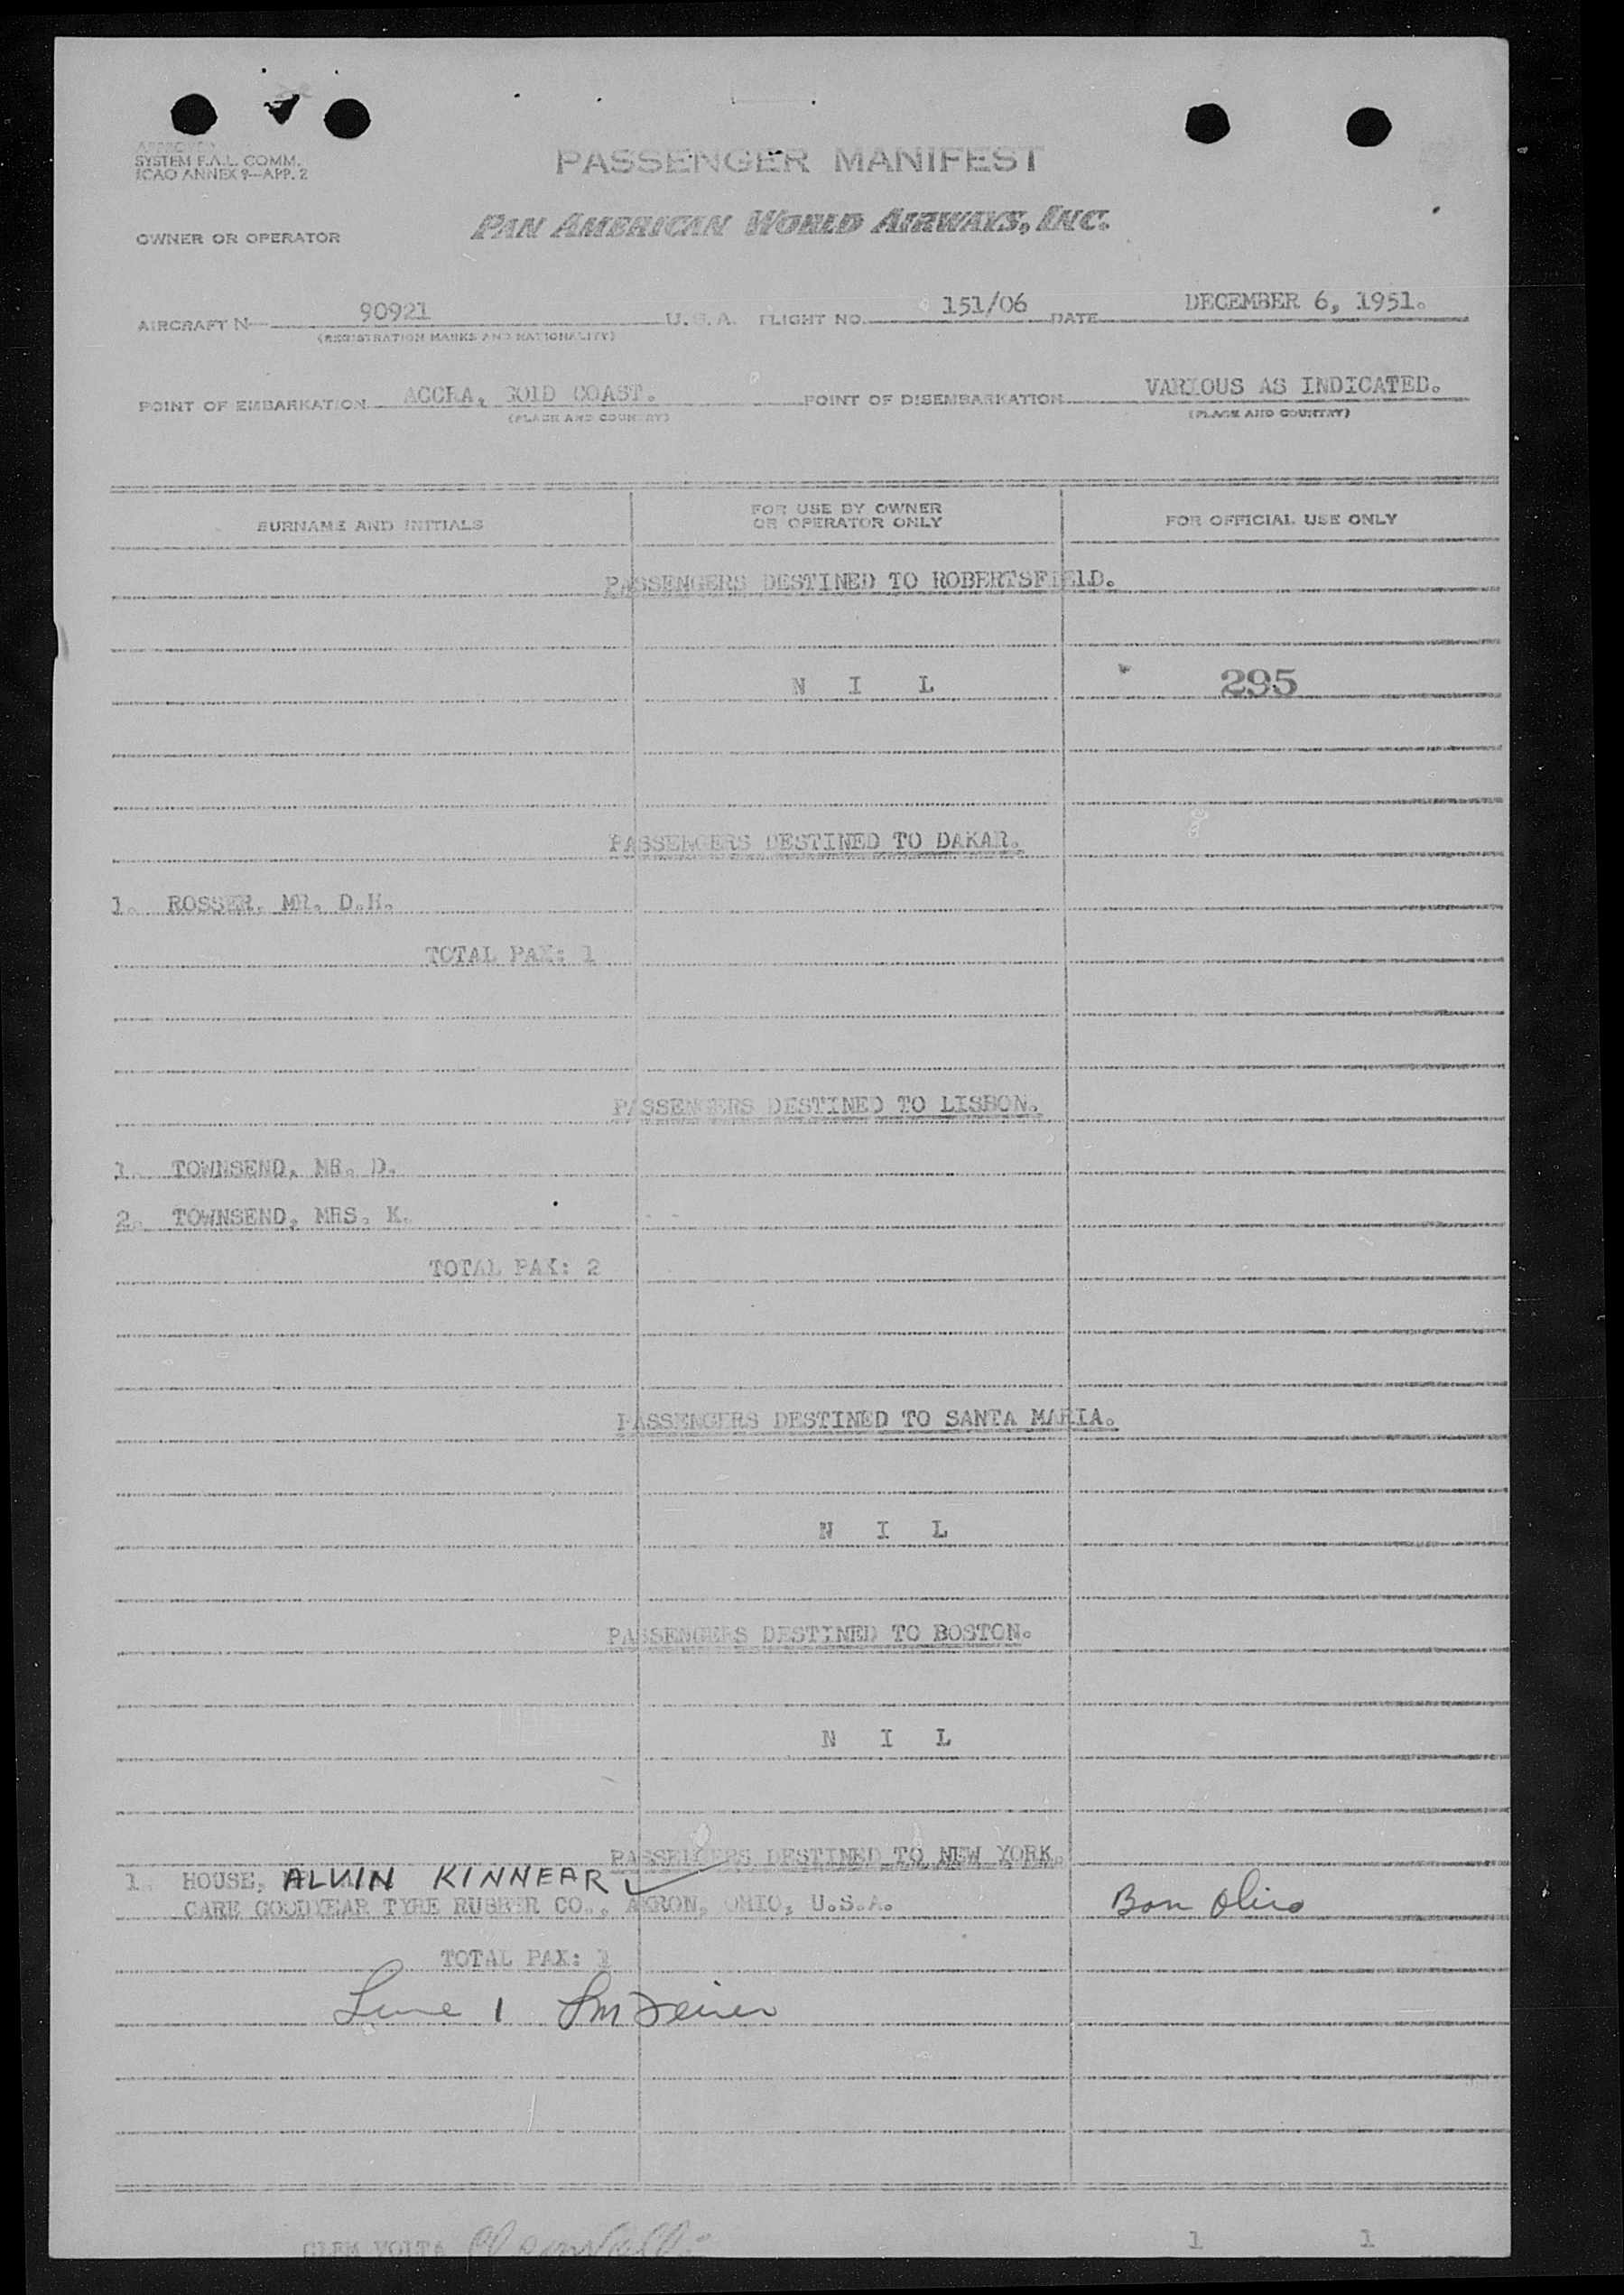 APPROVED
SYSTEM F.A.L. COMM.
ICAO ANNEX 9—APP. 2
PASSENGER MANIFEST
OWNER OR OPERATOR PAN AMERICAN WORLD AIRWAYS, INC.
AIRCRAFT N— 90921 U.S.A. FLIGHT NO. 151/06 DATE DECEMBER 6, 1951.
(REGISTRATION MARKS AND NATIONALITY)
POINT OF EMBARKATION ACCRA, GOLD COAST. POINT OF DISEMBARKATION VARIOUS AS INDICATED.
(PLACE AND COUNTRY) (PLACE AND COUNTRY)
SURNAME AND INITIALS FOR USE BY OWNER OR OPERATOR ONLY FOR OFFICIAL USE ONLY
PASSENGERS DESTINED TO ROBERTSFIELD.
N I L 295
PASSENGERS DESTINED TO DAKAR.
1. ROSSER, MR. D.H.
TOTAL PAX: 1
PASSENGERS DESTINED TO LISBON.
1. TOWNSEND, MR. D.
2. TOWNSEND, MRS. K.
TOTAL PAX: 2
PASSENGERS DESTINED TO SANTA MARIA.
N I L
PASSENGERS DESTINED TO BOSTON.
N I L
PASSENGERS DESTINED TO NEW YORK.
1. HOUSE, ALVIN KINNEAR
CARE GOODYEAR TYRE RUBBER CO., AKRON, OHIO, U.S.A.
TOTAL PAX: 1
Line 1
CLEM VOLTA 1 1